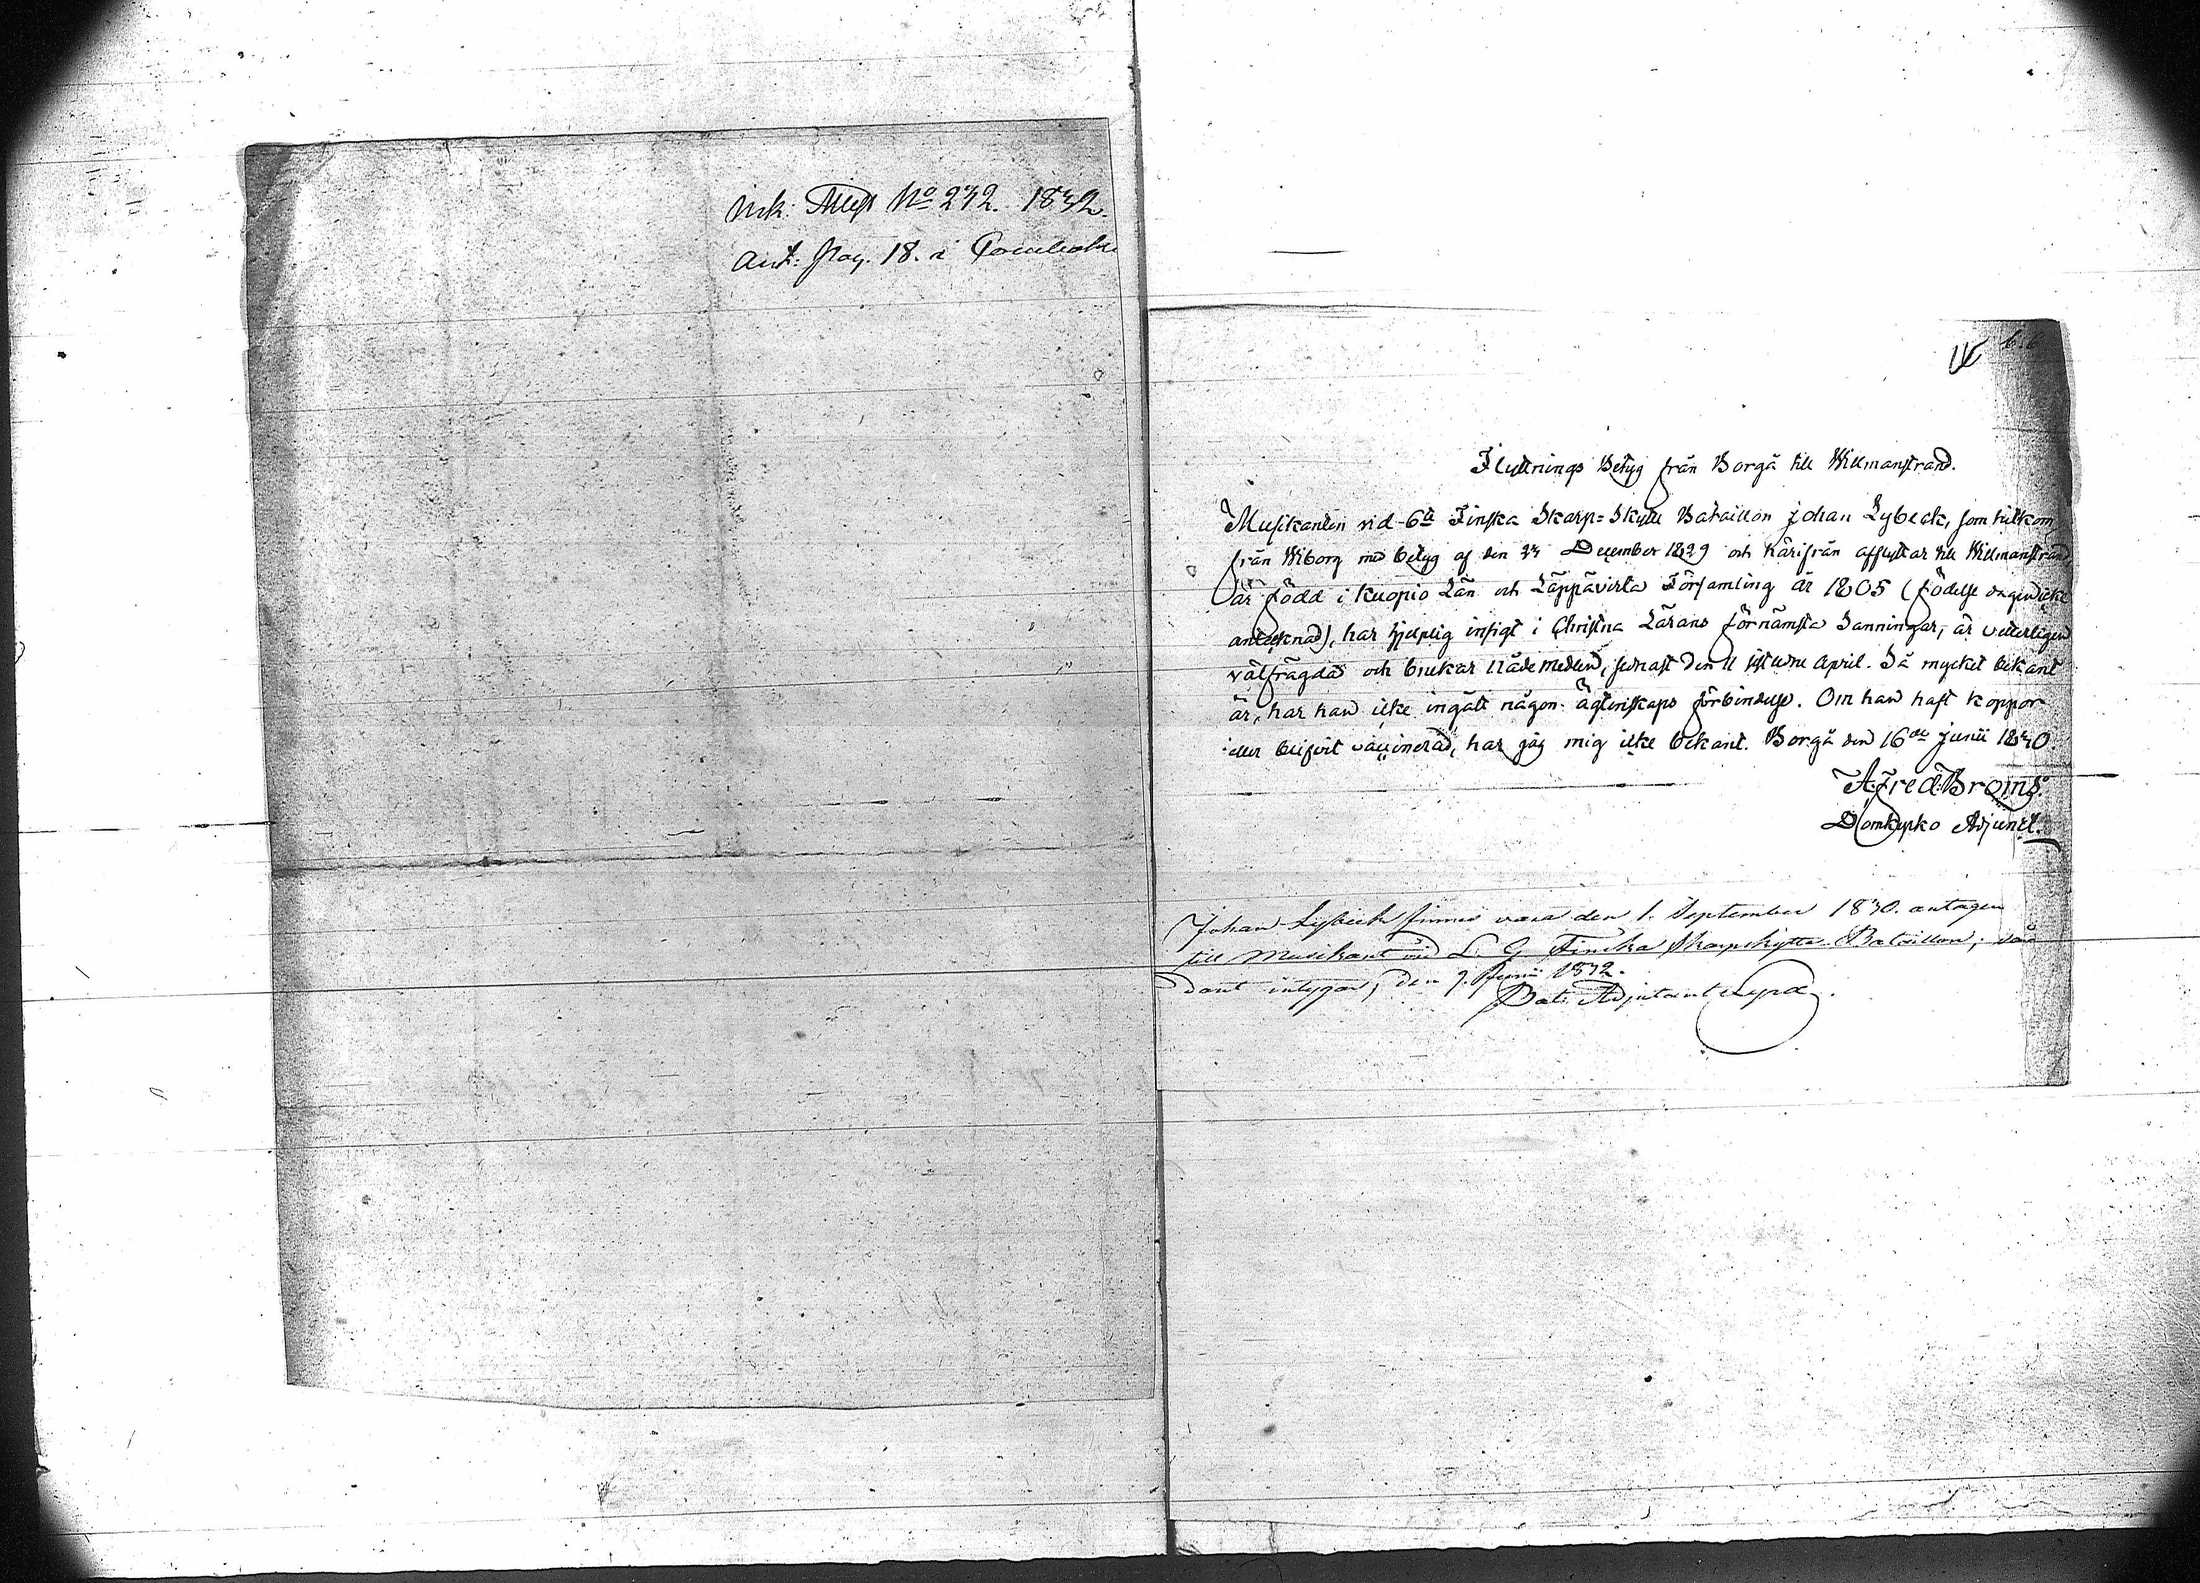 Ink: Attest No 232. 1832.
Ant: pag. 18. i
Flyttnings Betyg från Borgå till Willmanstrand.
Musikanten vid 6te Finska Skarp=Skytte Bataillon Johan Lybeck, som hitkom
från Wiborg med betyg af den 23 December 1829 och härifrån afflyttar till Willmanstrand,
är född i Kuopio Län och Läppävirta Församling år 1805 (födelse dagen icke
antecknad), har hjelplig insigt i Christna Lärans förnämsta Sanningar, är veterligen
välfrägdad och brukar nådemedlen, sednast den 11 sistledne April. Så mycket bekant
är, har han icke ingått någon ägtenskaps förbindelse. Om han haft koppor
eller blifvit vaccinerad, har jag mig icke bekant. Borgå den 16de Junii 1830
A. Fred: Broms.
Domkyrko Adjunct.
Johan Lybeck finnes vara den 1. September 1830. antagen
till Musikant vid L. G. Finska Skarpskytte Bataillon; så
dant intygar, den 7. Junii 1832.
Bat: Adjutant